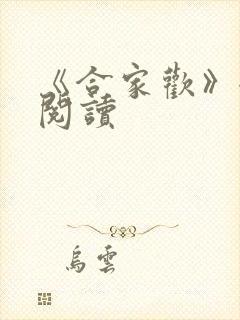 《合家歡》
閱讀
烏雲